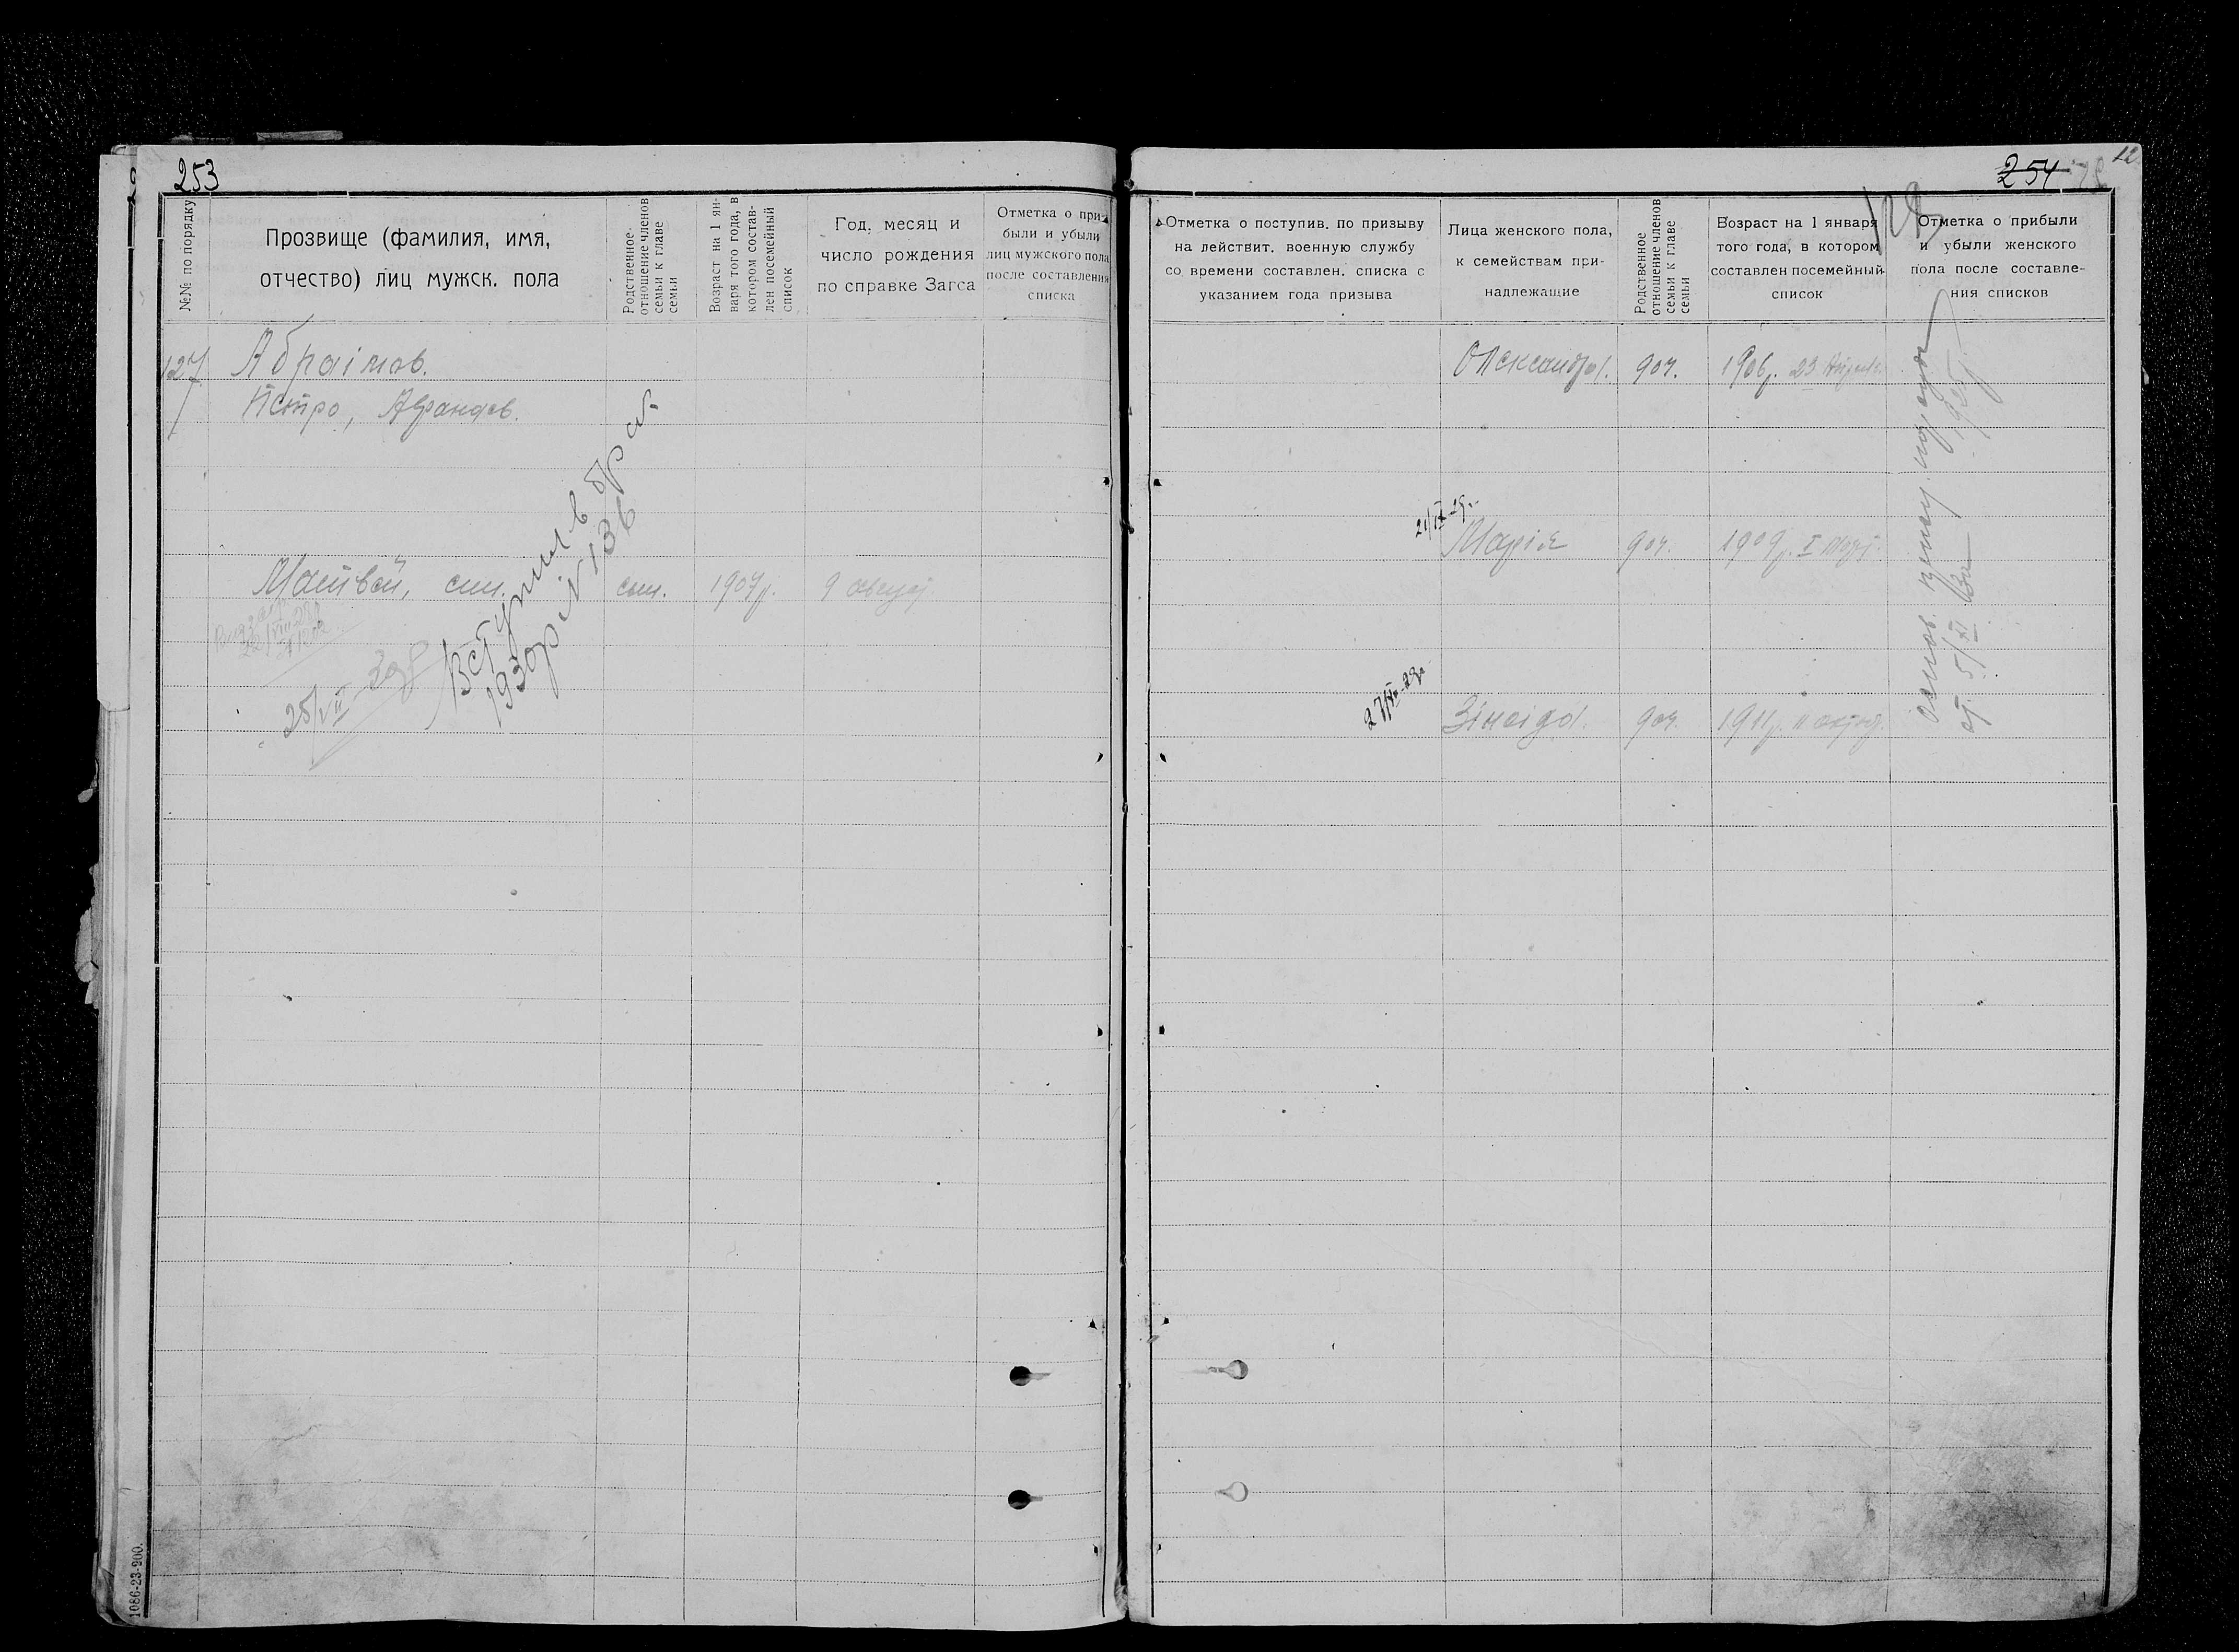 253
№№ по порядку
Прозвище (фамилия, имя,
отчество) лиц мужск. пола
Родственное
отношение членов
семьи к главе
семьи
Возраст на 1 ян-
варя того года, в
котором состав-
лен посемейный
список
Год, месяц и
число рождения
по справке Загса
Отметка о при-
были и убыли
лиц мужского пола
после составления
списка
127
Абраімов.
Петро,
Матвей, син. син. 1907р. 9
25/VII
Вступил в брак
1930р N 136
1086-23-900.
254
12
128
Отметка о поступив. по призыву
на действит. военную службу
со времени составлен. списка с
указанием года призыва
Лица женского пола,
к семействам при-
надлежащие
Родственное
отношение членов
семьи к главе
семьи
Возраст на 1 января
того года, в котором
составлен посемейный
список
Отметка о прибыли
и убыли женского
пола после составле-
ния списков
Олександра. доч. 1906р. 23 Апреля
Марія доч. 1909р. I
Зінаіда. доч. 1911р. 11